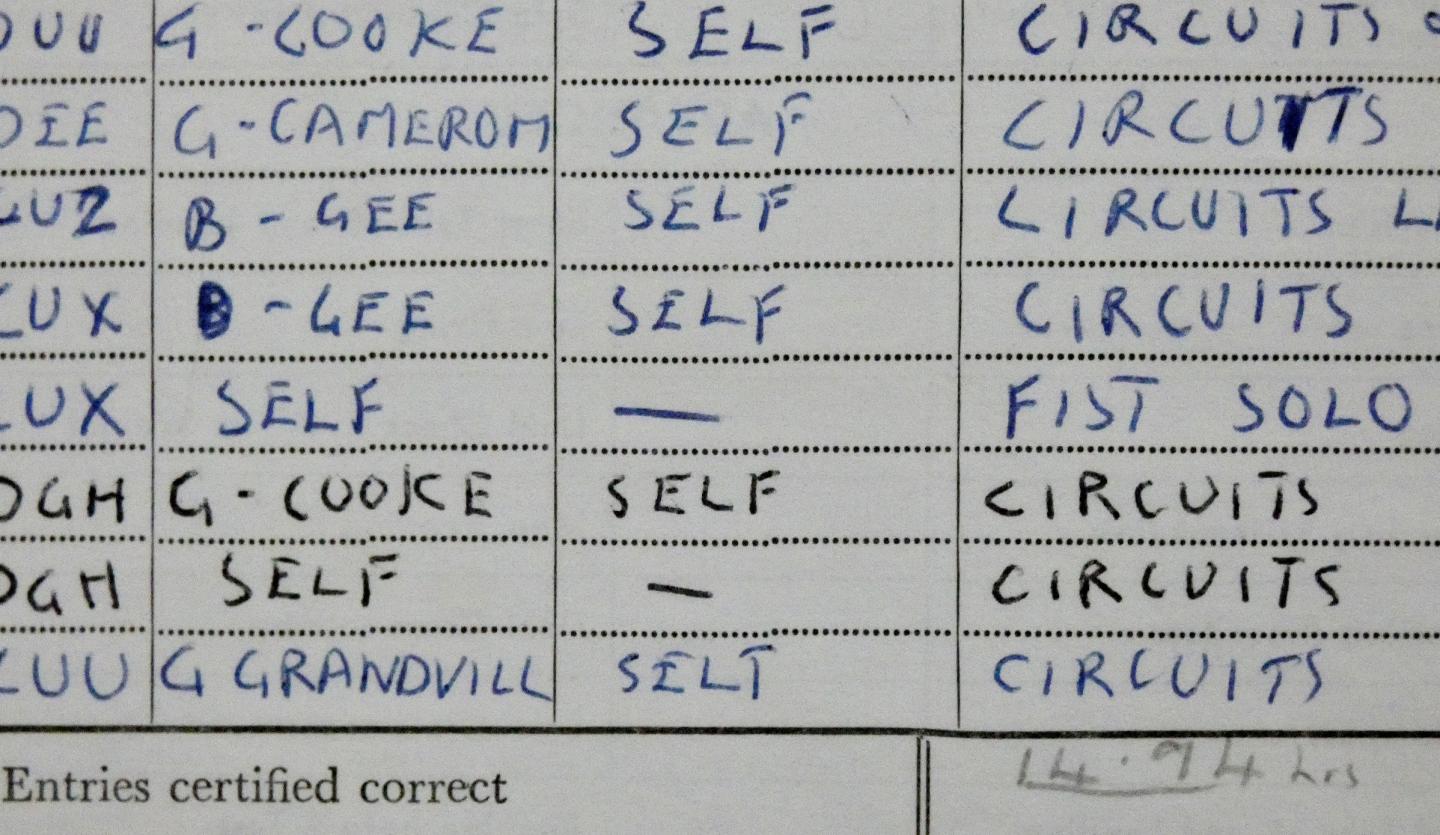 OUU G - COOKE SELF CIRCUITS
OEE G - CAMEROM SELF CIRCUITS
LUZ B - GEE SELF CIRCUITS
LUX B - GEE SELF CIRCUITS
LUX SELF — FIST SOLO
OGH G - COOKE SELF CIRCUITS
OGH SELF — CIRCUITS
LUU G GRANDVILL SELT CIRCUITS
Entries certified correct 14.94 hrs